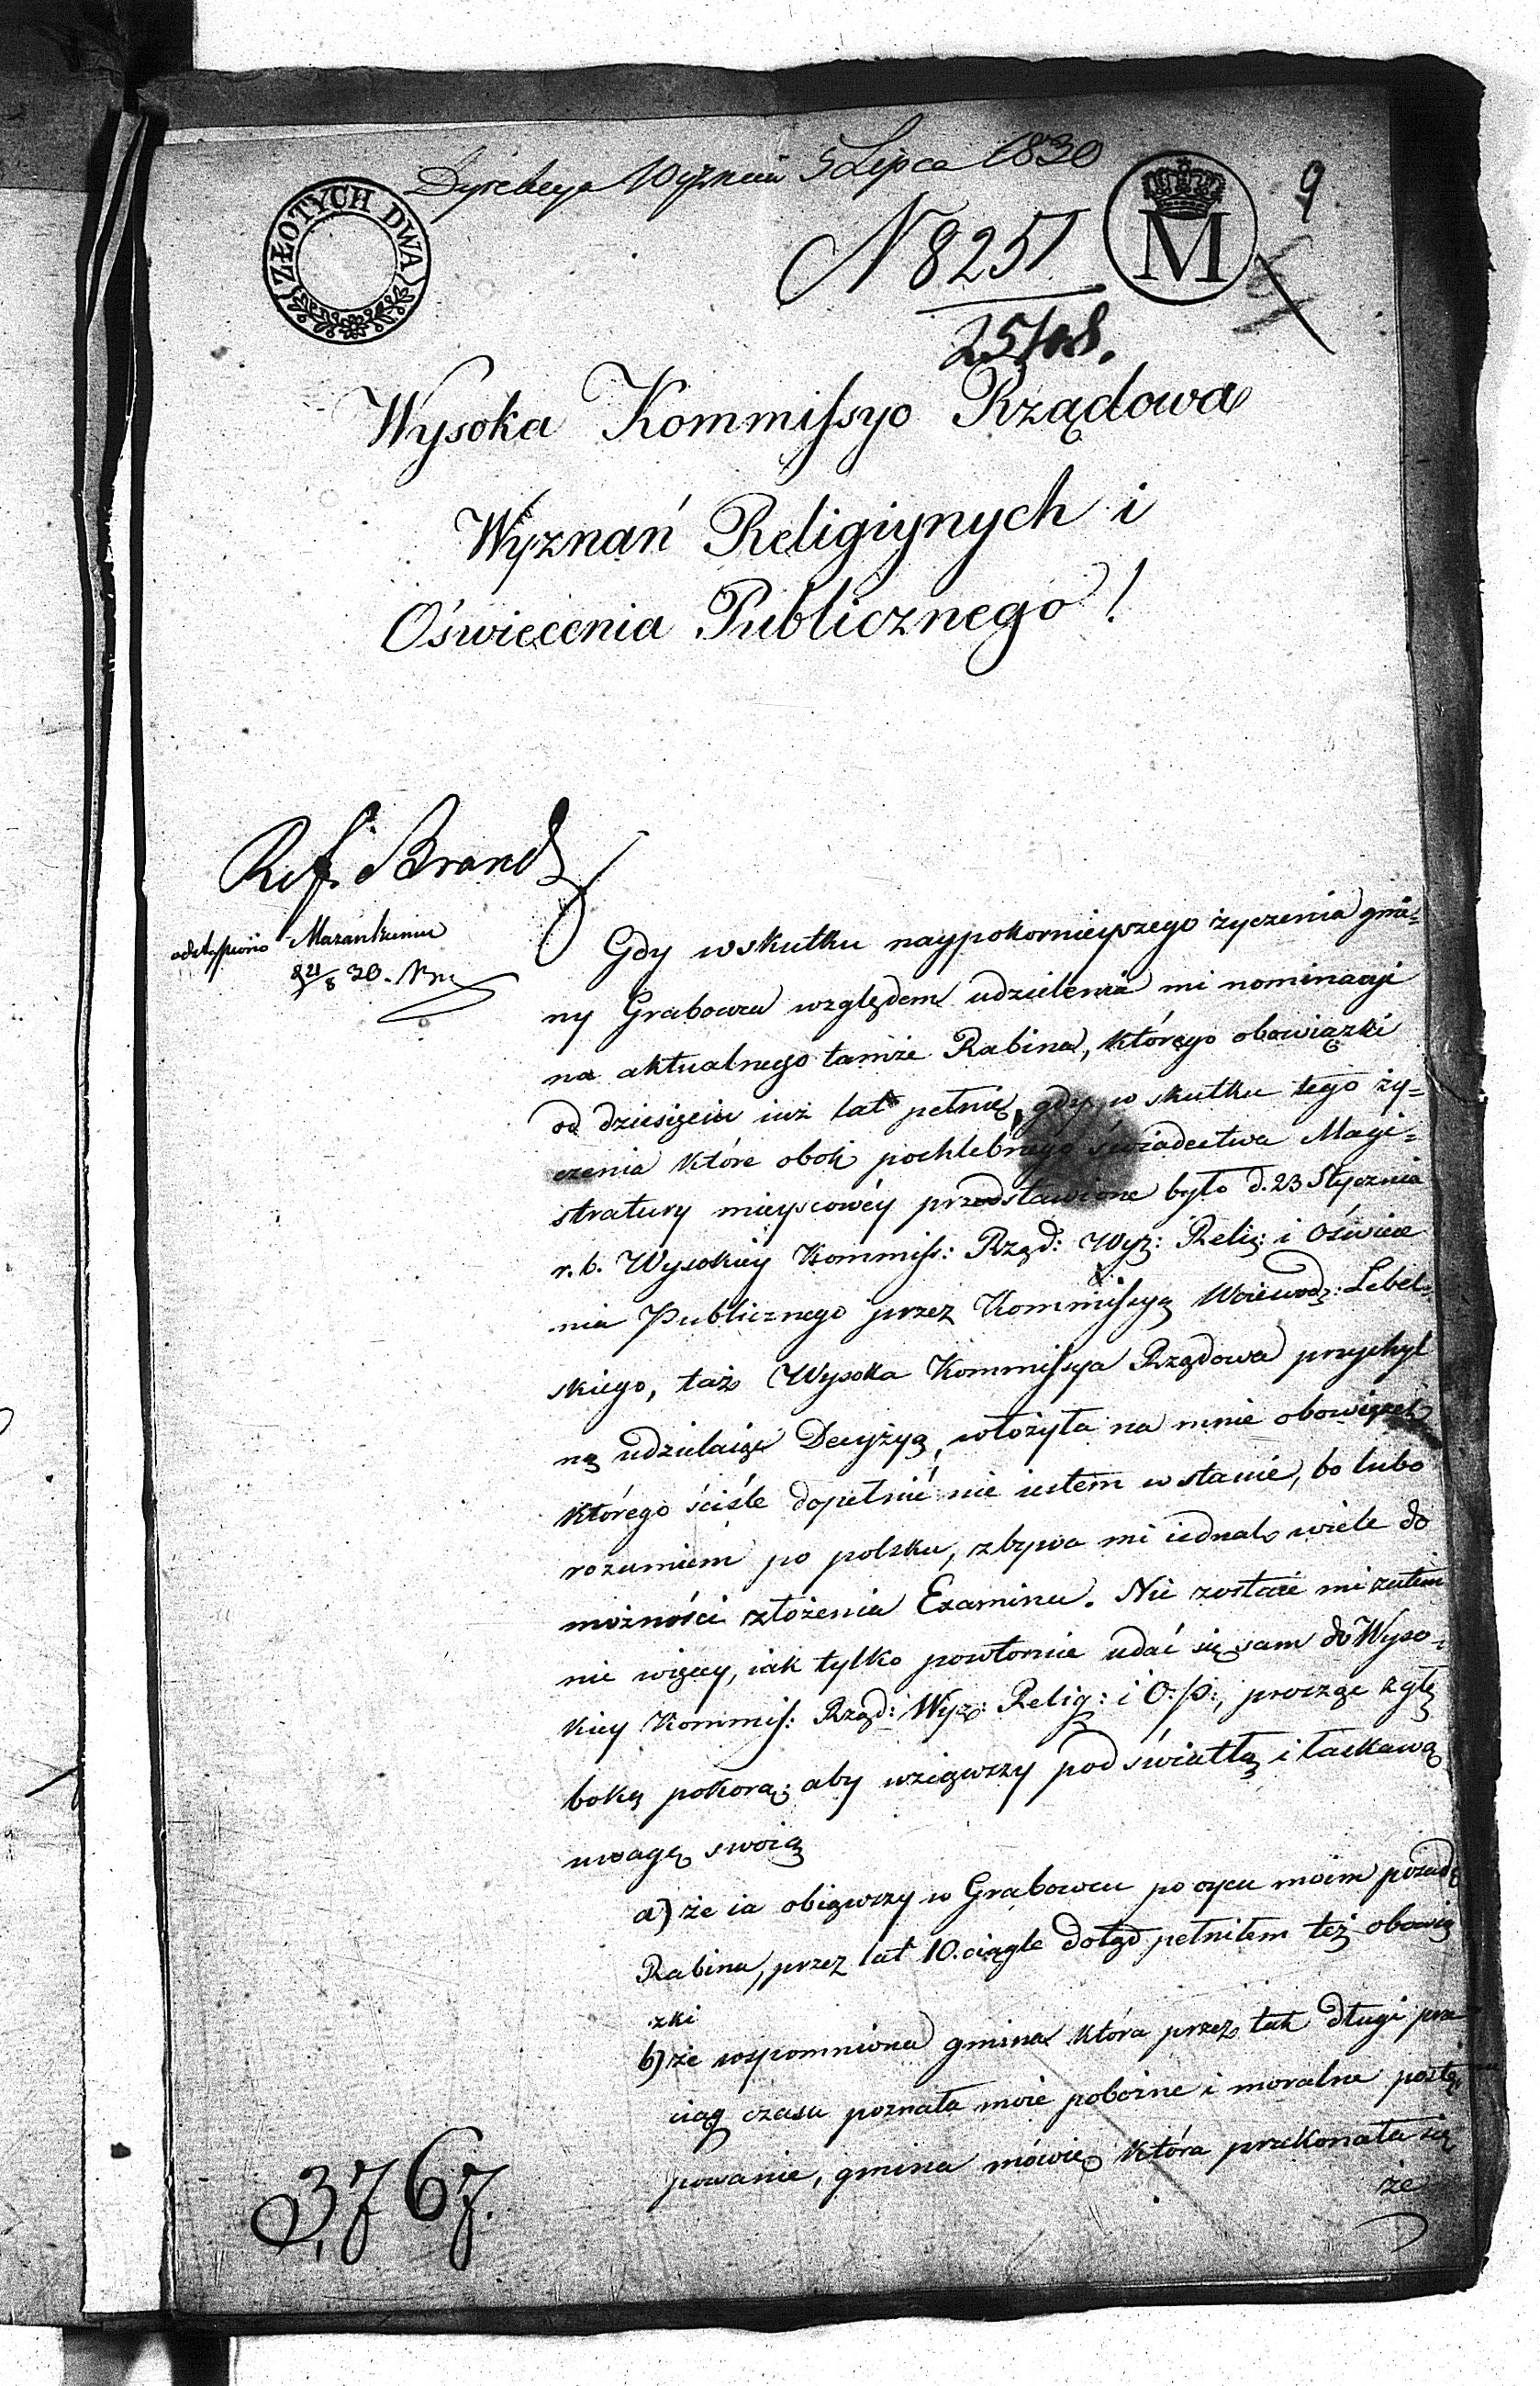 Dyrekcya Wyznań 5 Lipca 1830
ZŁOTYCH DWA
M
9
N 8251
25/108.
Wysoka Kommissyo Rządowa
Wyznań Religiynych i
Oświecenia Publicznego!
Ref. Brand
odstąpiono
30.
Gdy wskutku naypokornieyszego życzenia gmi=
ny Grabowca względem udzielenia mi nominacyi
na aktualnego tamże Rabina, którego obowiązki
od dziesięciu iuż lat pełnię, gdy w skutku tego ży=
czenia które obok pochlebnego świadectwa Magi=
stratury mieyscowéy przedstawione było d. 23 Stycznia
r. b. Wysokiey Kommiss: Rząd: Wyz: Relig: i Oświece
nia Publicznego przez Kommissyą Woiewodz: Lubel=
skiego, taż Wysoka Kommissya Rządowa przychyl
ną udzielaiąc Decyzyą, włożyła na mnie obowiązek
którego ściśle dopełnić nie iestem wstanie, bo lubo
rozumiem po polsku, zbywa mi iednak wiele do
możności złożenia Examinu. Nie zostaie mi zatem
nic więcey, iak tylko powtornie udać się sam do Wyso=
kiey Kommis: Rząd: Wyz: Relig: i O: P:, prosząc z głę
boką pokorą; aby wziąwszy pod światłą i łaskawą
uwagę swoią
a) że ia obiąwszy w Grabowcu po oycu moim posadę
Rabina, przez lat 10. ciągle dotąd pełniłem też obowią
zki
b) że wspomniona gmina która przez tak długi prze
ciąg czasu poznała moie pobożne i moralne postę
powanie, gmina mówię która przekonała się
że
3767.